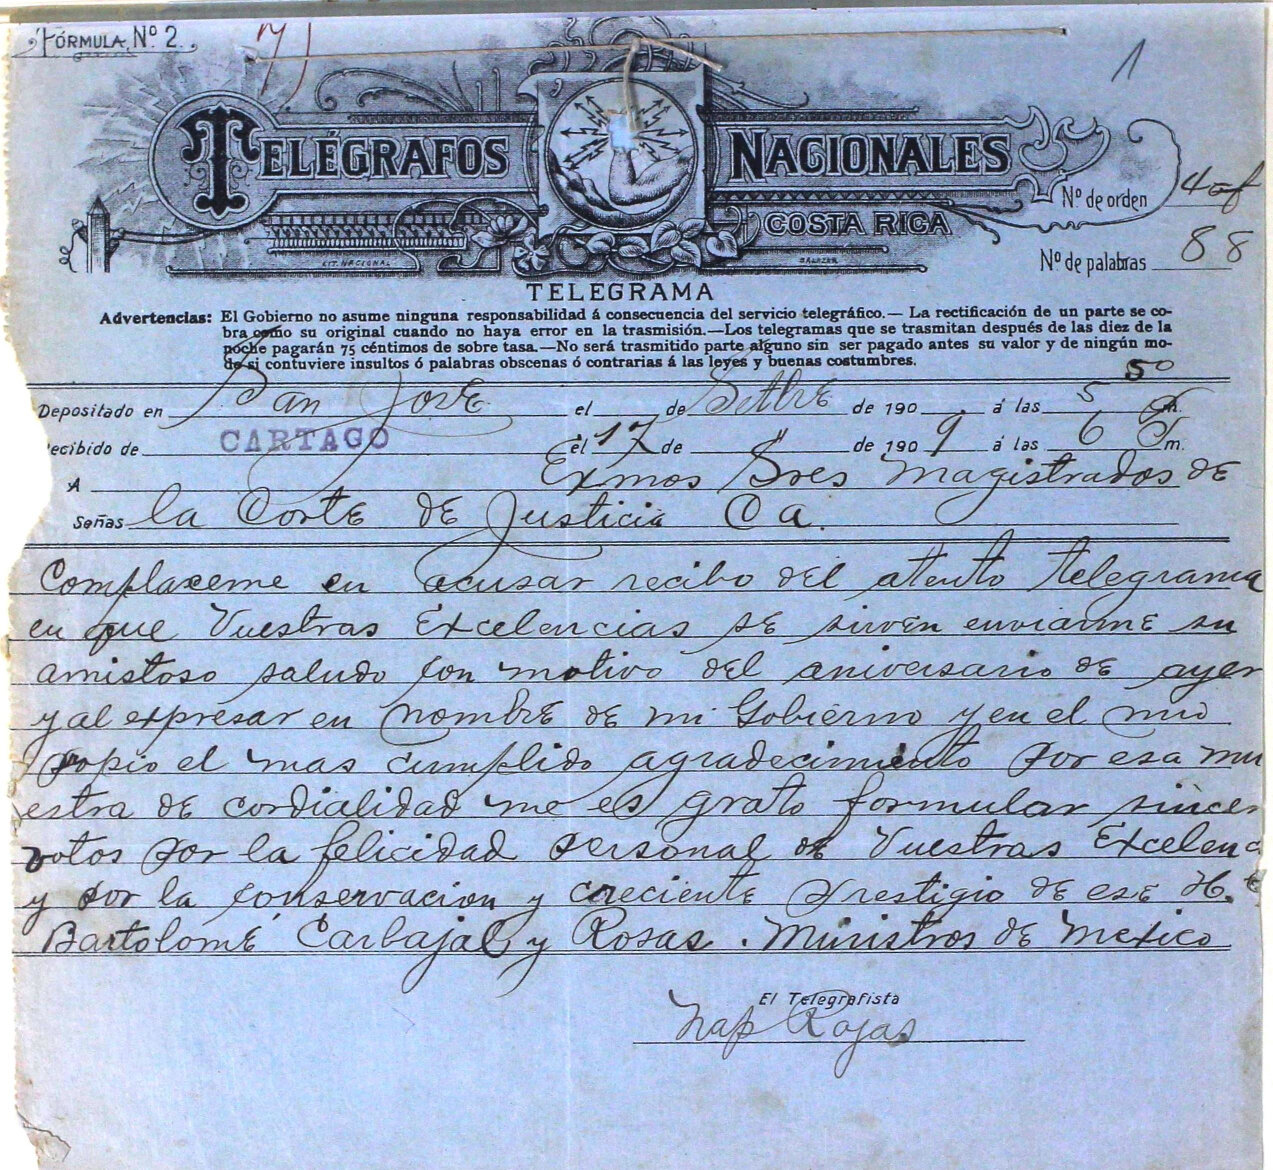 FÓRMULA, Nº 2.
1
TELÉGRAFOS NACIONALES
COSTA RICA
Nº de orden 4 of
Nº de palabras 88
LIT. NACIONAL
TELEGRAMA
Advertencias: El Gobierno no asume ninguna responsabilidad á consecuencia del servicio telegráfico.— La rectificación de un parte se co-
bra como su original cuando no haya error en la trasmisión.—Los telegramas que se trasmitan después de las diez de la
noche pagarán 75 céntimos de sobre tasa.—No será trasmitido parte alguno sin ser pagado antes su valor y de ningún mo-
do si contuviere insultos ó palabras obscenas ó contrarias á las leyes y buenas costumbres.
Depositado en San José el de Setbre de 190 á las 5 50 p m.
ecibido de CARTAGO el 17 de " de 190 9 á las 6 P m.
A Exmos Sres Magistrados de
Señas la Corte de Justicia Ca.
Complaceme en acusar recibo del atento telegrama
en que Vuestras Excelencias se sirven enviarme su
amistoso saludo con motivo del aniversario de ayer
y al expresar en nombre de mi Gobierno y en el mio
propio el mas cumplido agradecimiento por esa mu
estra de cordialidad me es grato formular sincer
votos por la felicidad personal de Vuestras Excelenc
y por la conservacion y creciente prestigio de ese H. te
Bartolomé Carbajal y Rosas. Ministros de Mexico
El Telegrafista
Nap Rojas